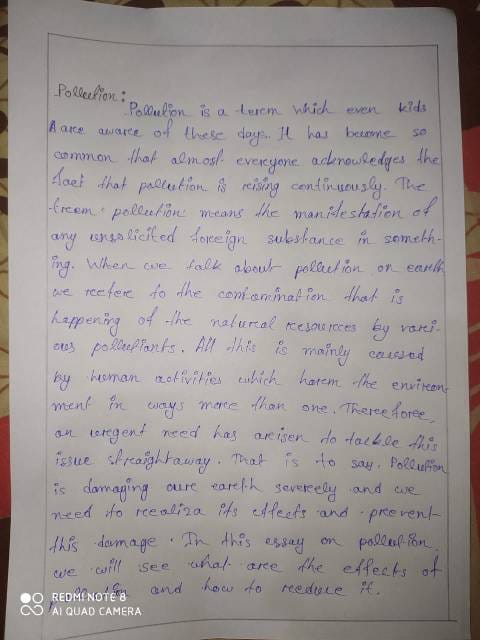 Pollution:
Pollution is a terem which even kids
A aree awaree of these days. It has become so
common that almost everyone acknowledges the
fact that pollution is reising continuously. The
treem pollution means the manifestation of
any unsolicited foreeign substance in someth-
ing. When we talk about pollution on earth
we reefere to the contamination that is
happening of the natureal reesourcces by varei-
ous pollutants. All this is mainly caused
by human activities which harem the environ-
ment in ways more than one. Thereefore,
an uregent need has areisen to tackle this
issue straightaway. That is to say, Pollution
is damaging oure earth severely and we
need to reealiza its effects and prevent
this damage. In this essay on pollution,
we will see what aree the effects of
and how to reeduce it.
REDMI NOTE 8
AI QUAD CAMERA